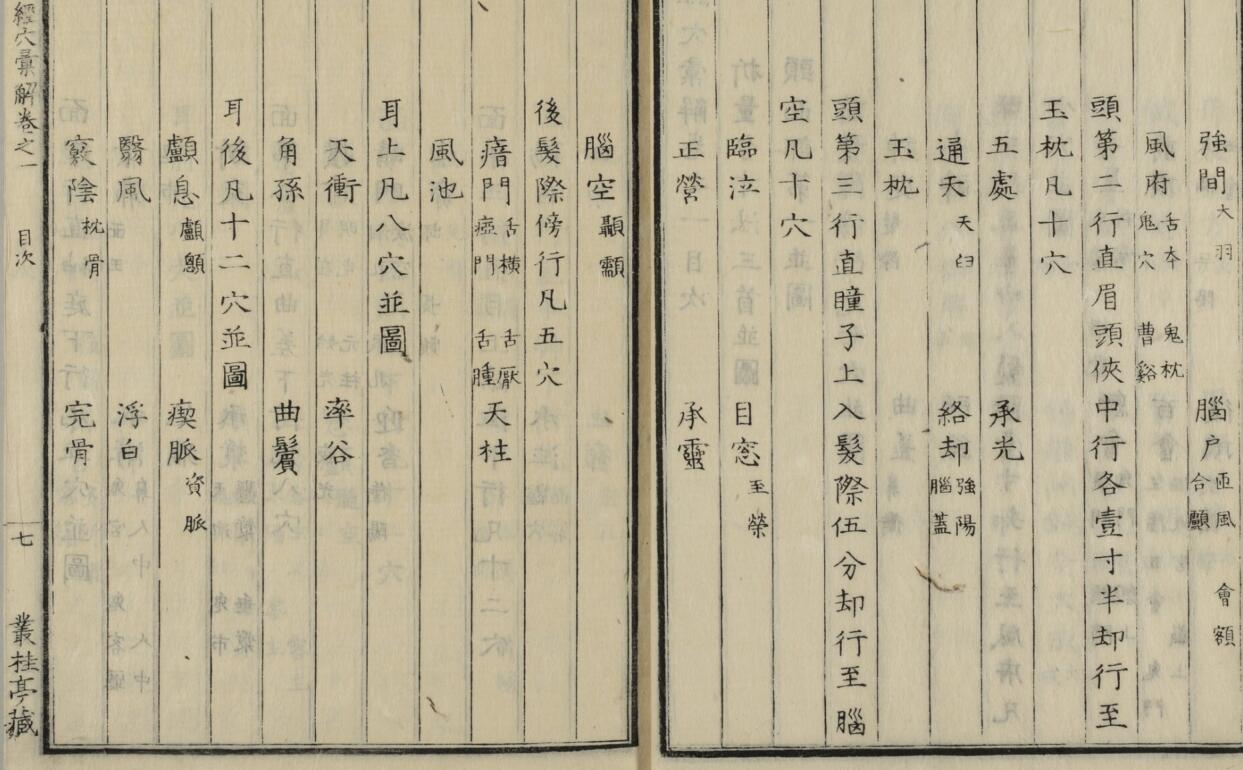 強間 大羽 腦户 匝風 合顱 會額
風府 舌夲 鬼穴 鬼枕 曹谿
頭第二行直眉頭俠中行各壹寸半却行至
玉枕凡 穴
五處 承光
通天 天臼 絡却 強陽 腦蓋
玉枕
頭第三行直瞳子上入髮際伍分却行至腦
空凡十穴
臨泣 目窓 至榮
正營 承靈
腦空 顳顬
後髮際傍行凡五穴
瘖門 舌橫 瘂門 舌厭 舌腫 天柱
風池
耳上凡八穴並圖
天衝 率谷
角孫 曲鬢
耳後凡十二穴並圖
顱息 顱顖 瘈脈 資脈
翳風 浮白
竅陰 枕骨 完骨
經穴彙解卷之一 目次 七 叢桂亭藏